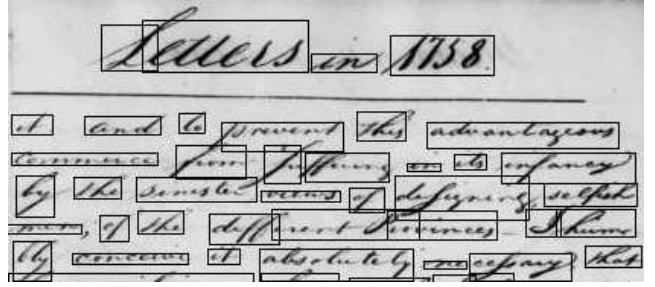 Letters in 1758.
it and to prevent this advantageous
commerce from suffering in its infancy
by the sinister views of designing, selfish
men, of the different Provinces - I hum
bly conceive it absolutely necessary that